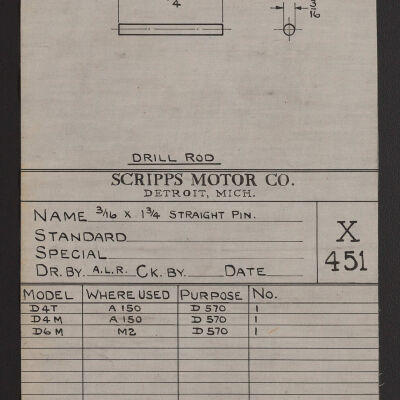 4
3
16
DRILL ROD
SCRIPPS MOTOR CO.
DETROIT, MICH.
NAME 3/16 X 1 3/4 STRAIGHT PIN.
STANDARD
SPECIAL
DR. BY. A.L.R. CK. BY. DATE
X
451
MODEL WHERE USED PURPOSE NO.
D4T A 150 D 570 1
D4M A 150 D 570 1
D6M M2 D 570 1